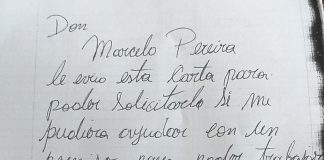 Don
Marcelo Pereira
le envio esta Carta para
poder Solicitarle si me
pudiera ayudar con un
permiso para poder trabajar